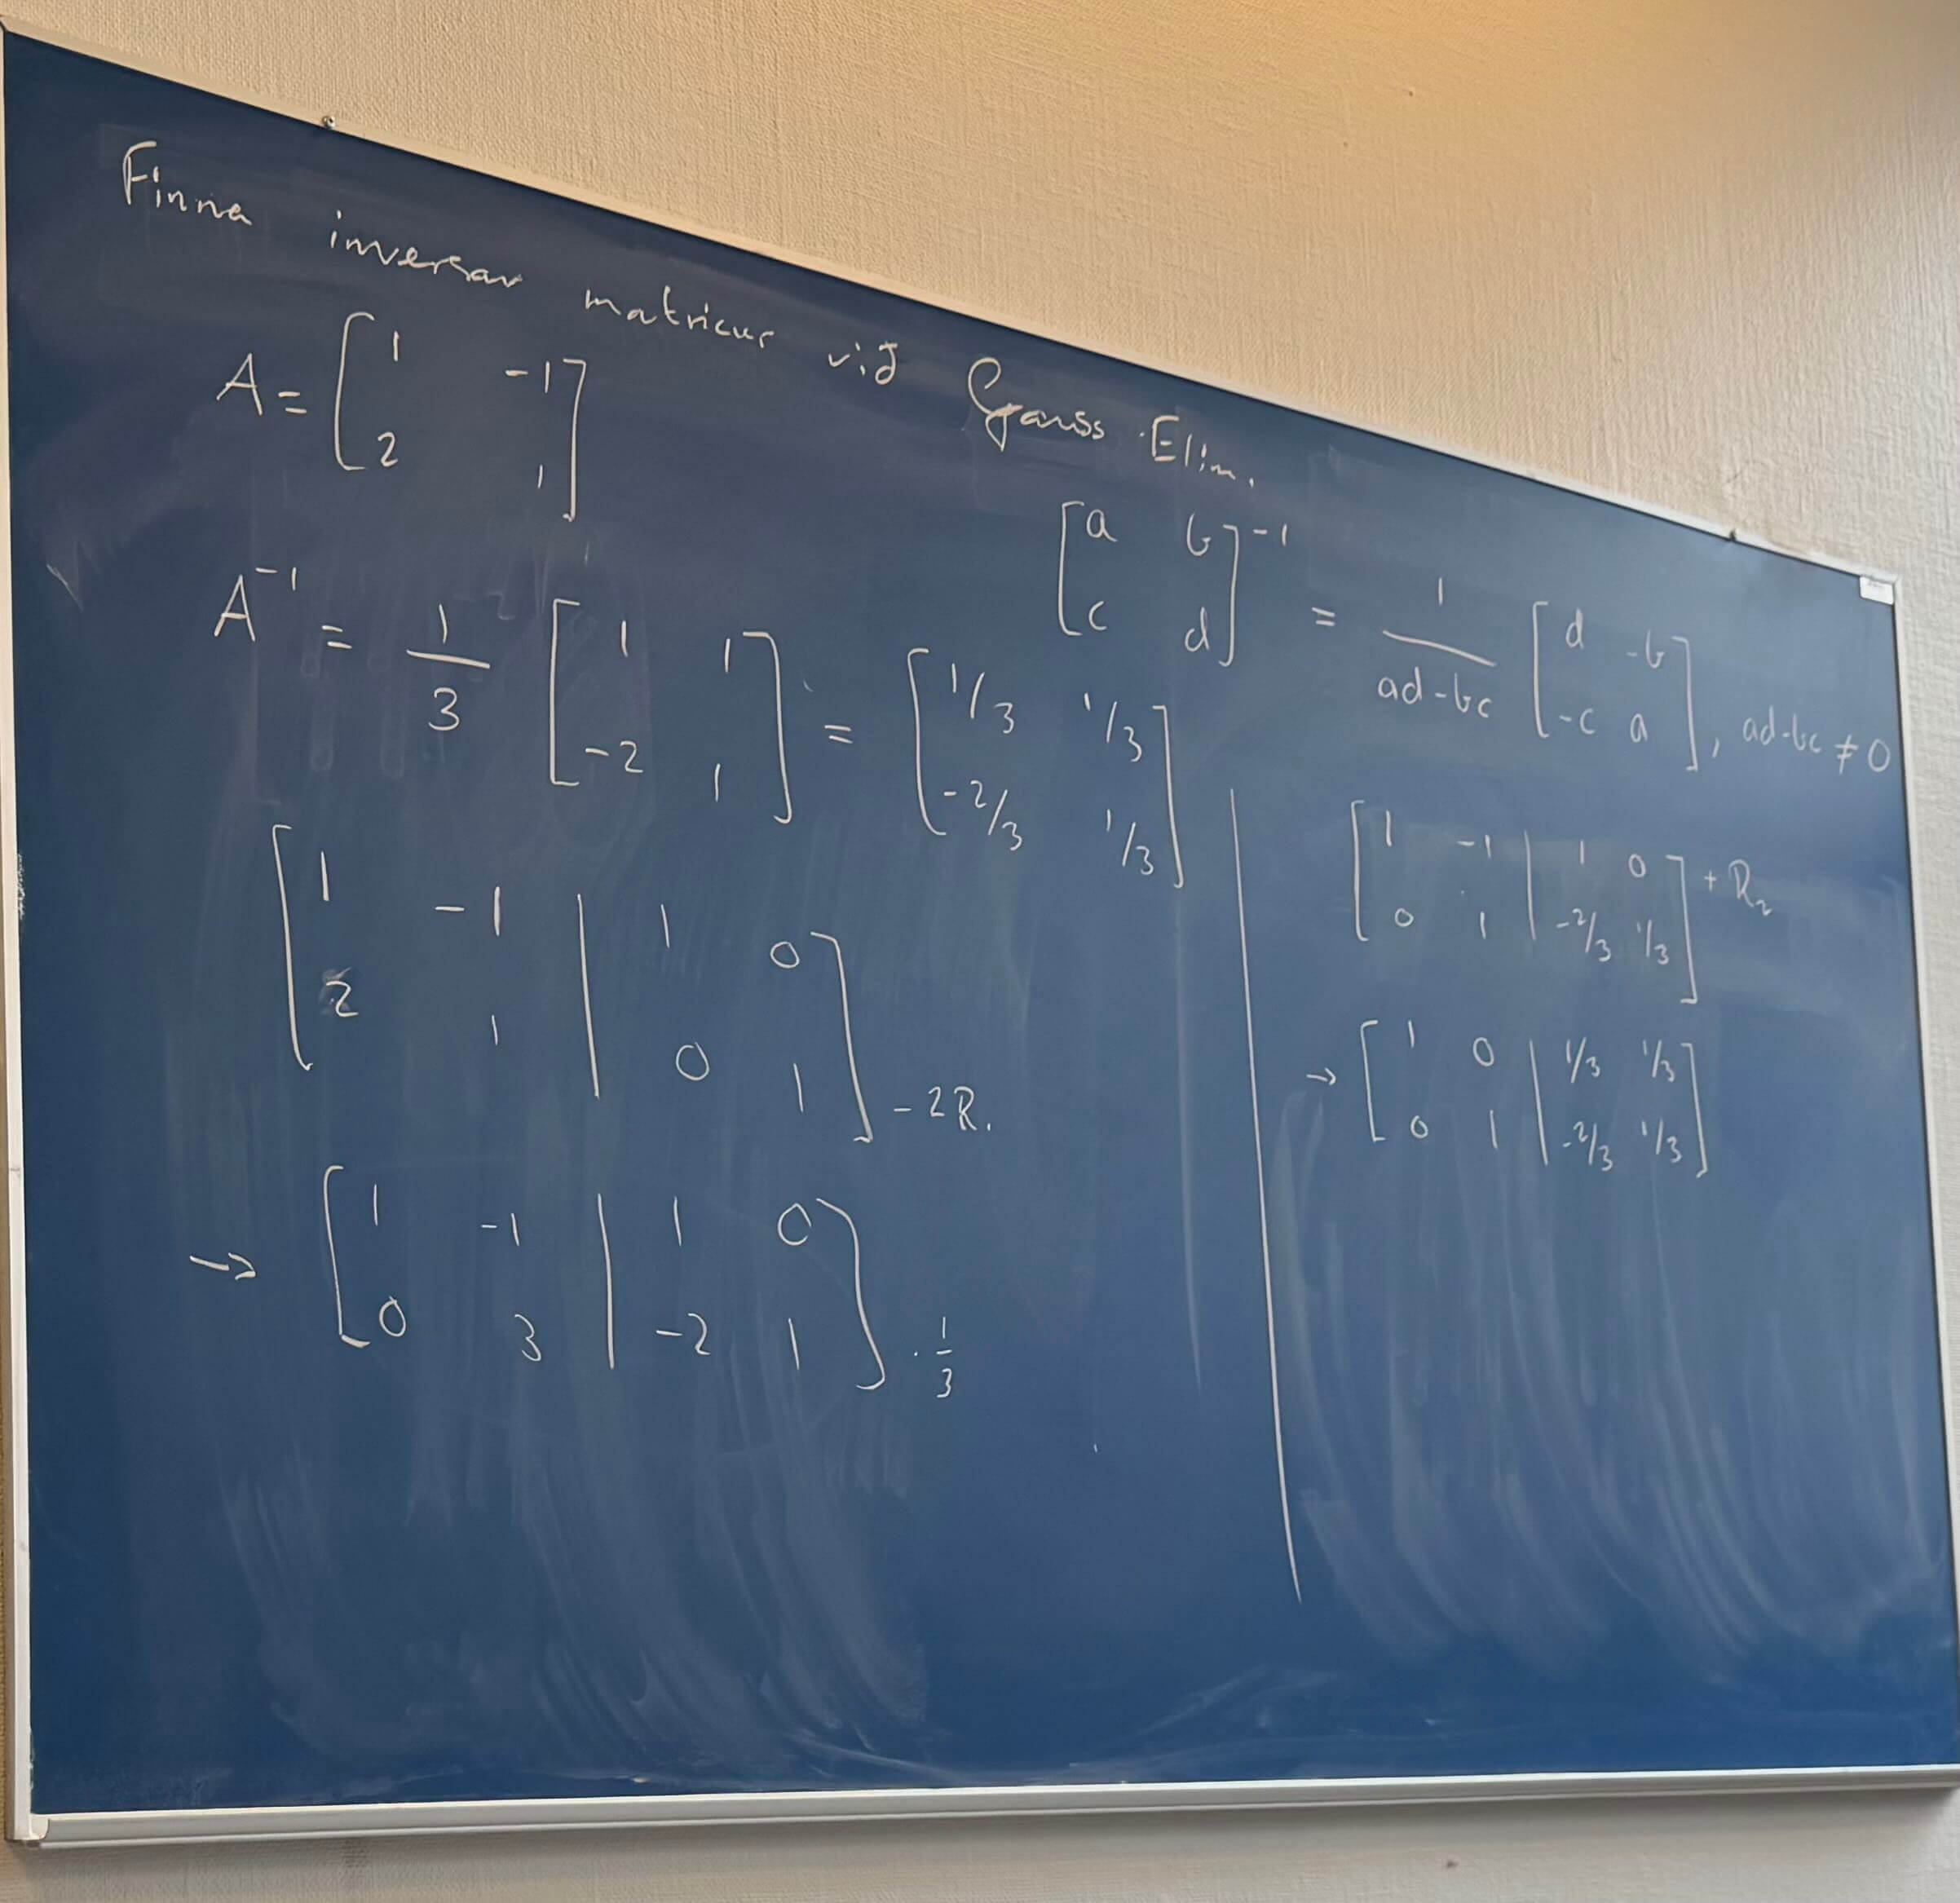 Finna inversar matricur við Gauss Elim.
A = [ 1 -1 ; 2 1 ]
[ a b ; c d ]^-1 = 1/(ad-bc) [ d -b ; -c a ], ad-bc ≠ 0
A^-1 = 1/3 [ 1 1 ; -2 1 ] = [ 1/3 1/3 ; -2/3 1/3 ]
[ 1 -1 | 1 0 ; 2 1 | 0 1 ] -2R₁
→ [ 1 -1 | 1 0 ; 0 3 | -2 1 ] · 1/3
[ 1 -1 | 1 0 ; 0 1 | -2/3 1/3 ] + R₂
→ [ 1 0 | 1/3 1/3 ; 0 1 | -2/3 1/3 ]